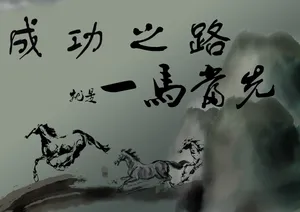 成功之路
就是一馬當先